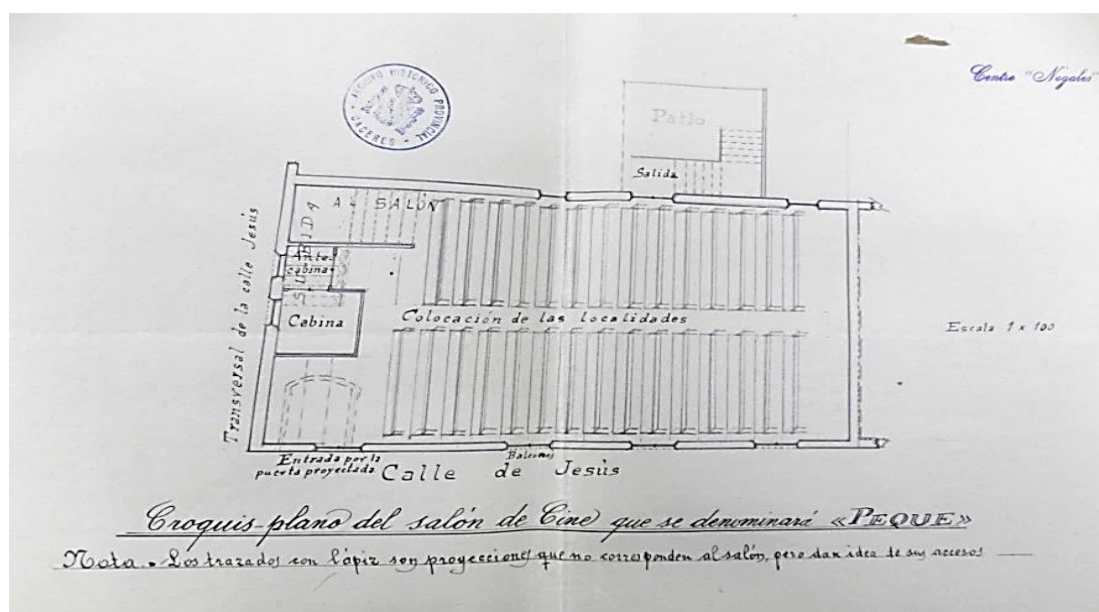 Centro "Nogales"
ARCHIVO HISTORICO PROVINCIAL
- CACERES -
Patio
Salida
SUBIDA
AL SALÓN
Ante-
cabina
Cabina
Colocación de las localidades
Transversal de la calle Jesús
Escala 1 x 100
Entrada por la
puerta proyectada
Balcones
Calle de Jesús
Croquis-plano del salón de Cine que se denominará «PEQUE»
Nota. Los trazados con lápiz son proyecciones que no corresponden al salón, pero dan idea de sus accesos